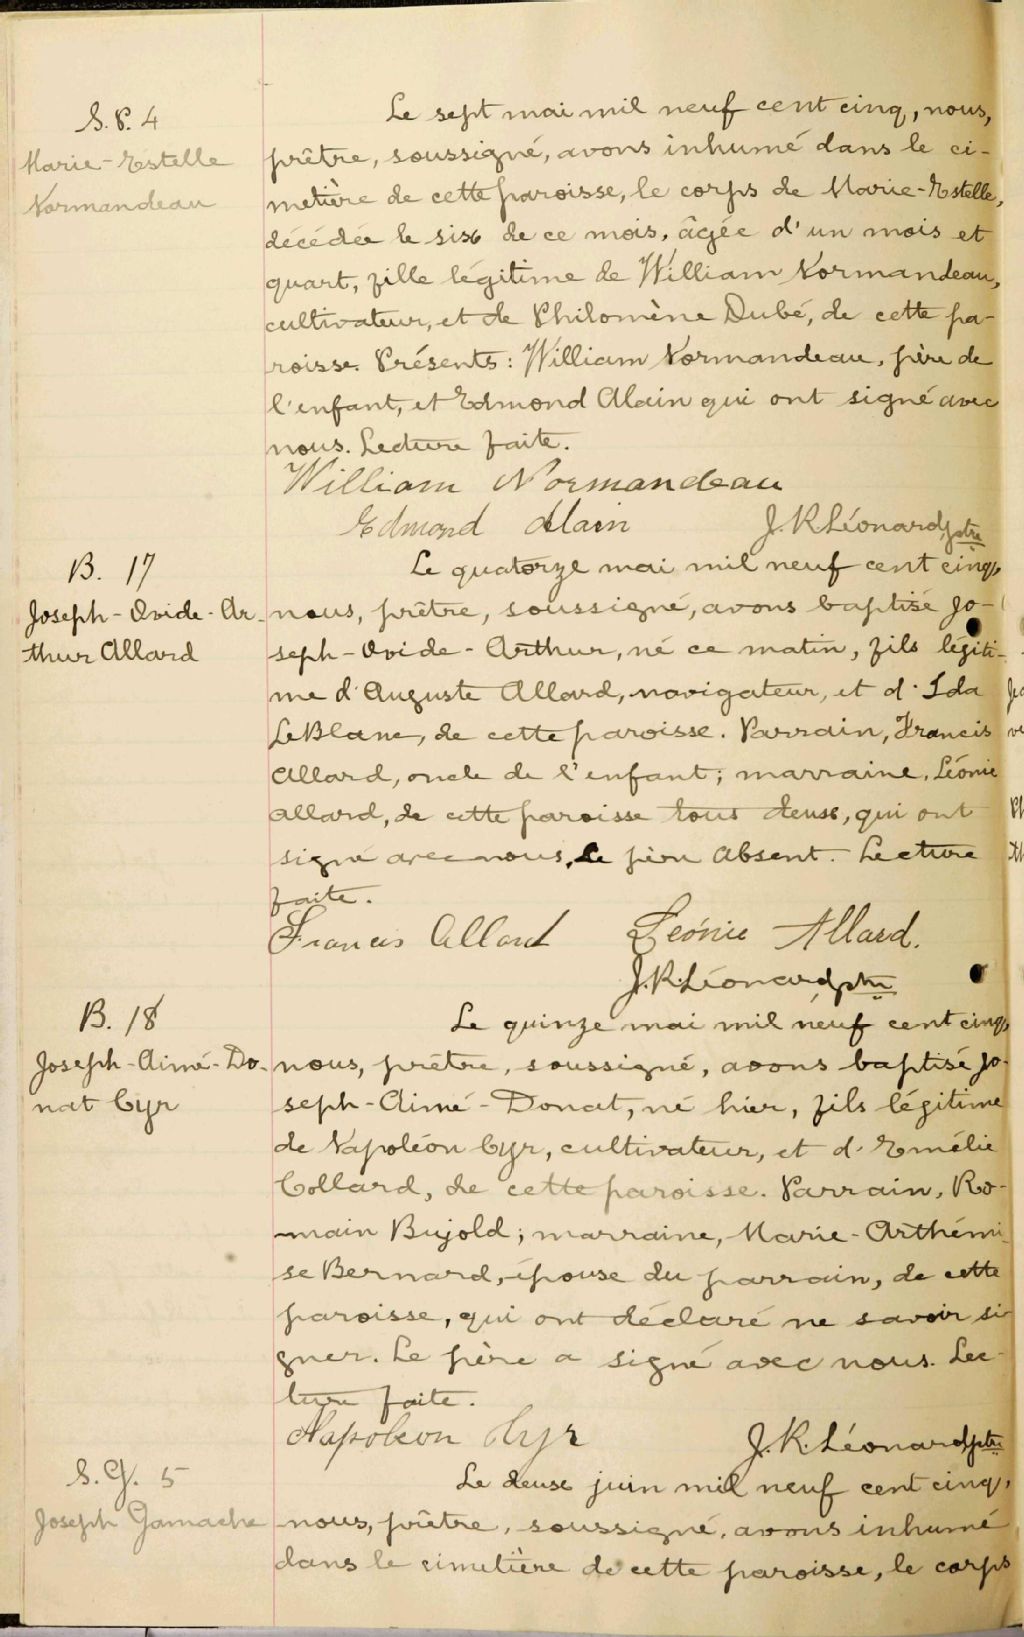 S. P. 4
Marie-Estelle
Normandeau
Le sept mai mil neuf cent cinq, nous,
prêtre, soussigné, avons inhumé dans le ci-
metière de cette paroisse, le corps de Marie-Estelle,
décédée le six de ce mois, âgée d'un mois et
quart, fille légitime de William Normandeau,
cultivateur, et de Philomène Dubé, de cette pa-
roisse. Présents: William Normandeau, père de
l'enfant, et Edmond Alain qui ont signé avec
nous. Lecture faite.
William Normandeau
Edmond Alain J. R. Léonard, ptre
B. 17
Joseph-Ovide-Ar-
thur Allard
Le quatorze mai mil neuf cent cinq,
nous, prêtre, soussigné, avons baptisé Jo-
seph-Ovide-Arthur, né ce matin, fils légiti-
me d'Auguste Allard, navigateur, et d'Ida
LeBlanc, de cette paroisse. Parrain, Francis
Allard, oncle de l'enfant; marraine, Léonie
Allard, de cette paroisse tous deux, qui ont
signé avec nous. Le père absent. Lecture
faite.
Francis Allard Léonie Allard.
J. R. Léonard ptre
B. 18
Joseph-Aimé-Do-
nat Cyr
Le quinze mai mil neuf cent cinq,
nous, prêtre, soussigné, avons baptisé Jo-
seph-Aimé-Donat, né hier, fils légitime
de Napoléon Cyr, cultivateur, et d'Emélie
Collard, de cette paroisse. Parrain, Ro-
main Bujold; marraine, Marie-Arthémi-
se Bernard, épouse du parrain, de cette
paroisse, qui ont déclaré ne savoir si-
gner. Le père a signé avec nous. Lec-
ture faite.
Napoleon Cyr J. R. Léonard ptre
S. G. 5
Joseph Gamache
Le deux juin mil neuf cent cinq,
nous, prêtre, soussigné, avons inhumé
dans le cimetière de cette paroisse, le corps